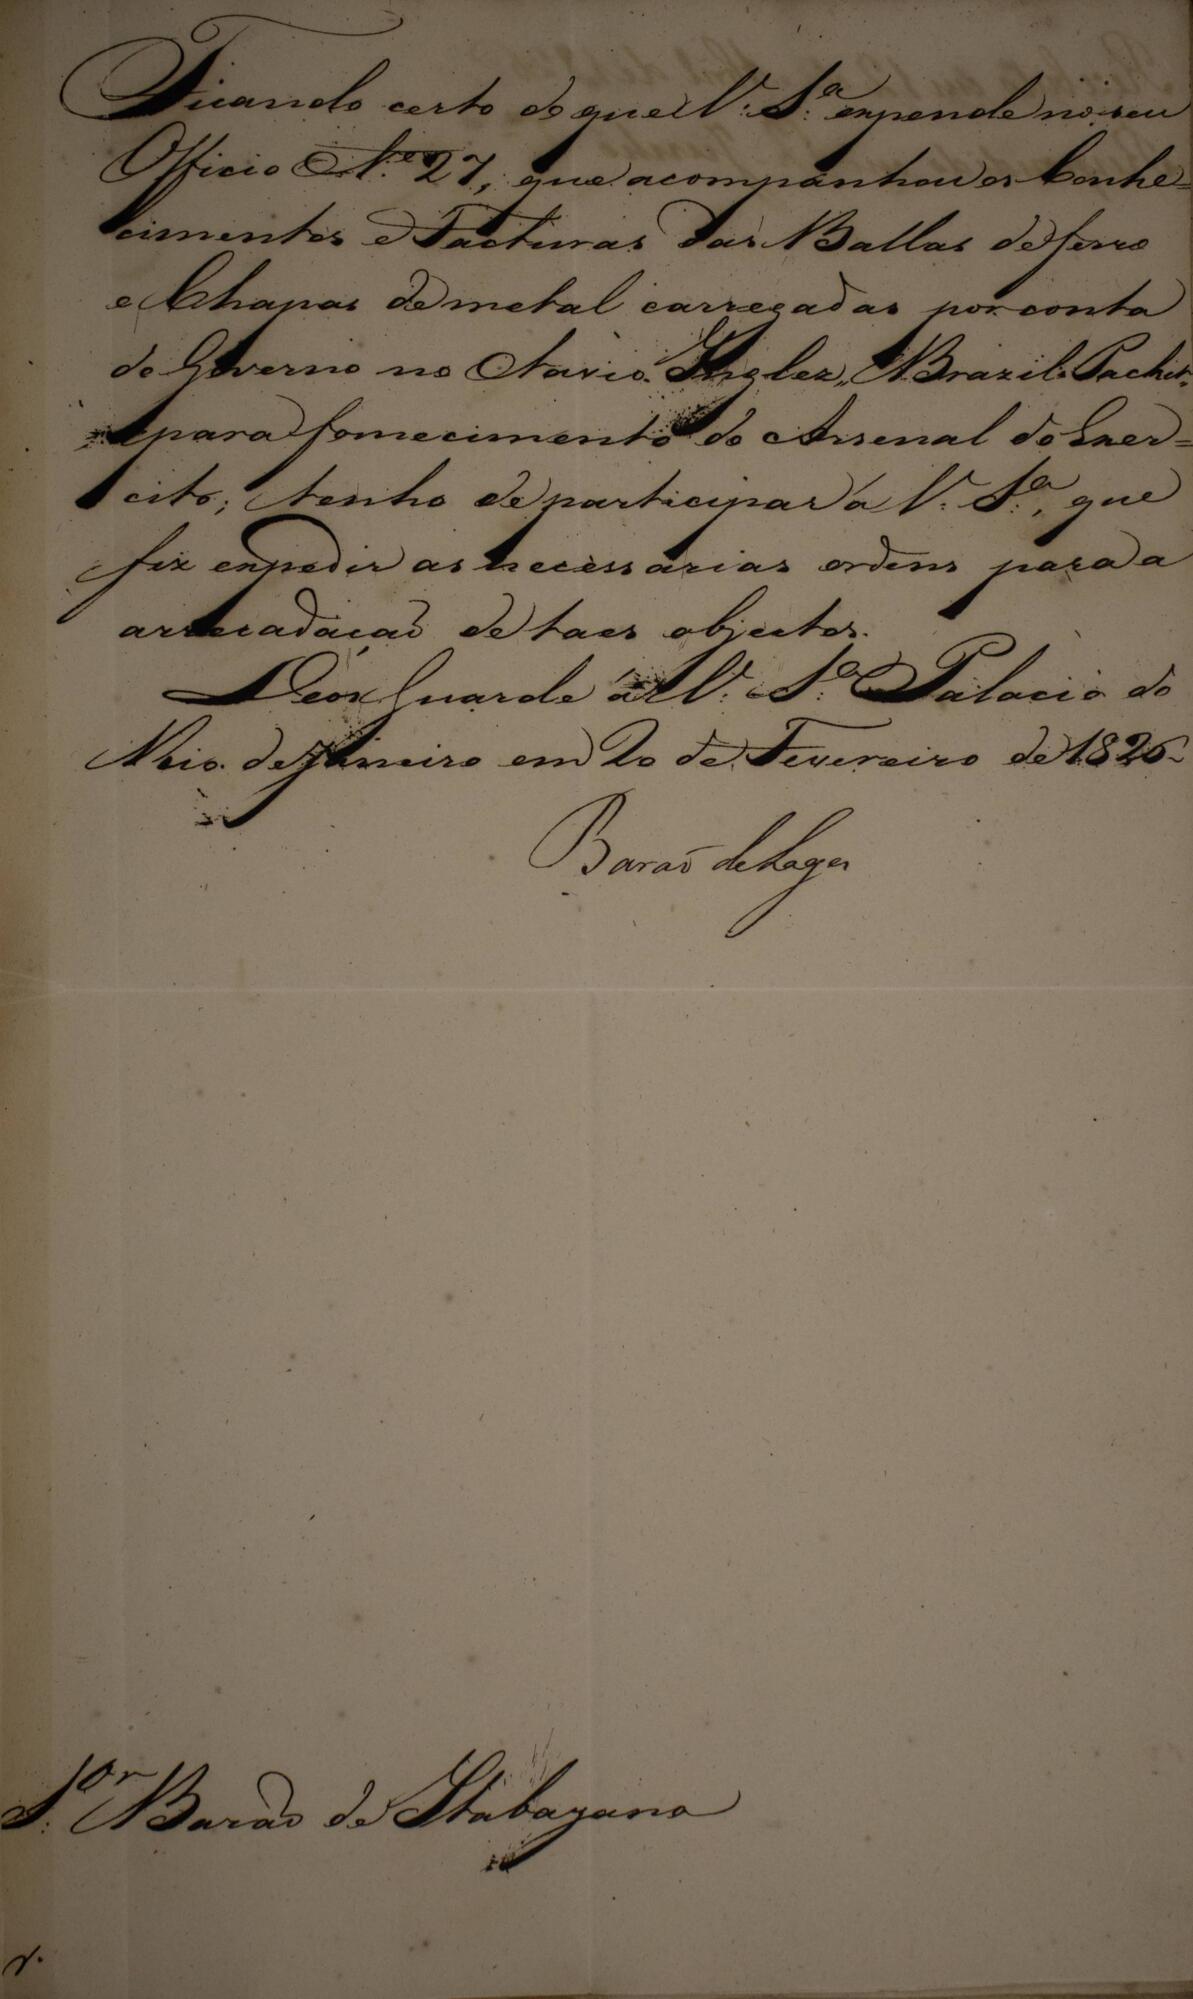 Ficando certo do que V. S.ª expende no seu
Officio N.º 27, que acompanhou os Conhe=
cimentos e Facturas das Ballas de ferro
e Chapas de metal carregadas por conta
do Governo no Navio Inglez, Brazil Packet,
para fornecimento do Arsenal do Exer=
cito; tenho de participar á V. S.ª, que
fiz expedir as necessarias ordens para a
arrecadação de taes objectos.
Deos Guarde á V. S.ª Palacio do
Rio de Janeiro em 20 de Fevereiro de 1826
Barão de Lages
S.or Barão de Itabayana